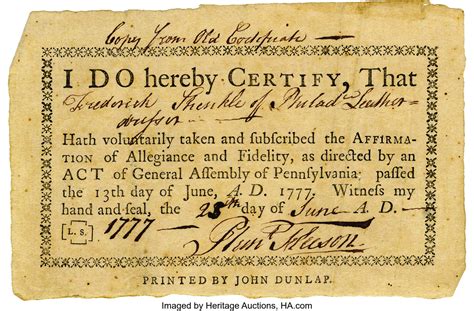 Copy from Old Certificate —
I DO hereby CERTIFY, That
Frederick Shenkle of Philad. Leather
dresser
Hath voluntarily taken and subscribed the AFFIRMA-
TION of Allegiance and Fidelity, as directed by an
ACT of General Assembly of Pennsylvania; passed
the 13th day of June, A. D. 1777. Witness my
hand and seal, the 25th day of June A. D. —
[L. S.] 1777 — Plunt Fleeson.
PRINTED BY JOHN DUNLAP.
Imaged by Heritage Auctions, HA.com